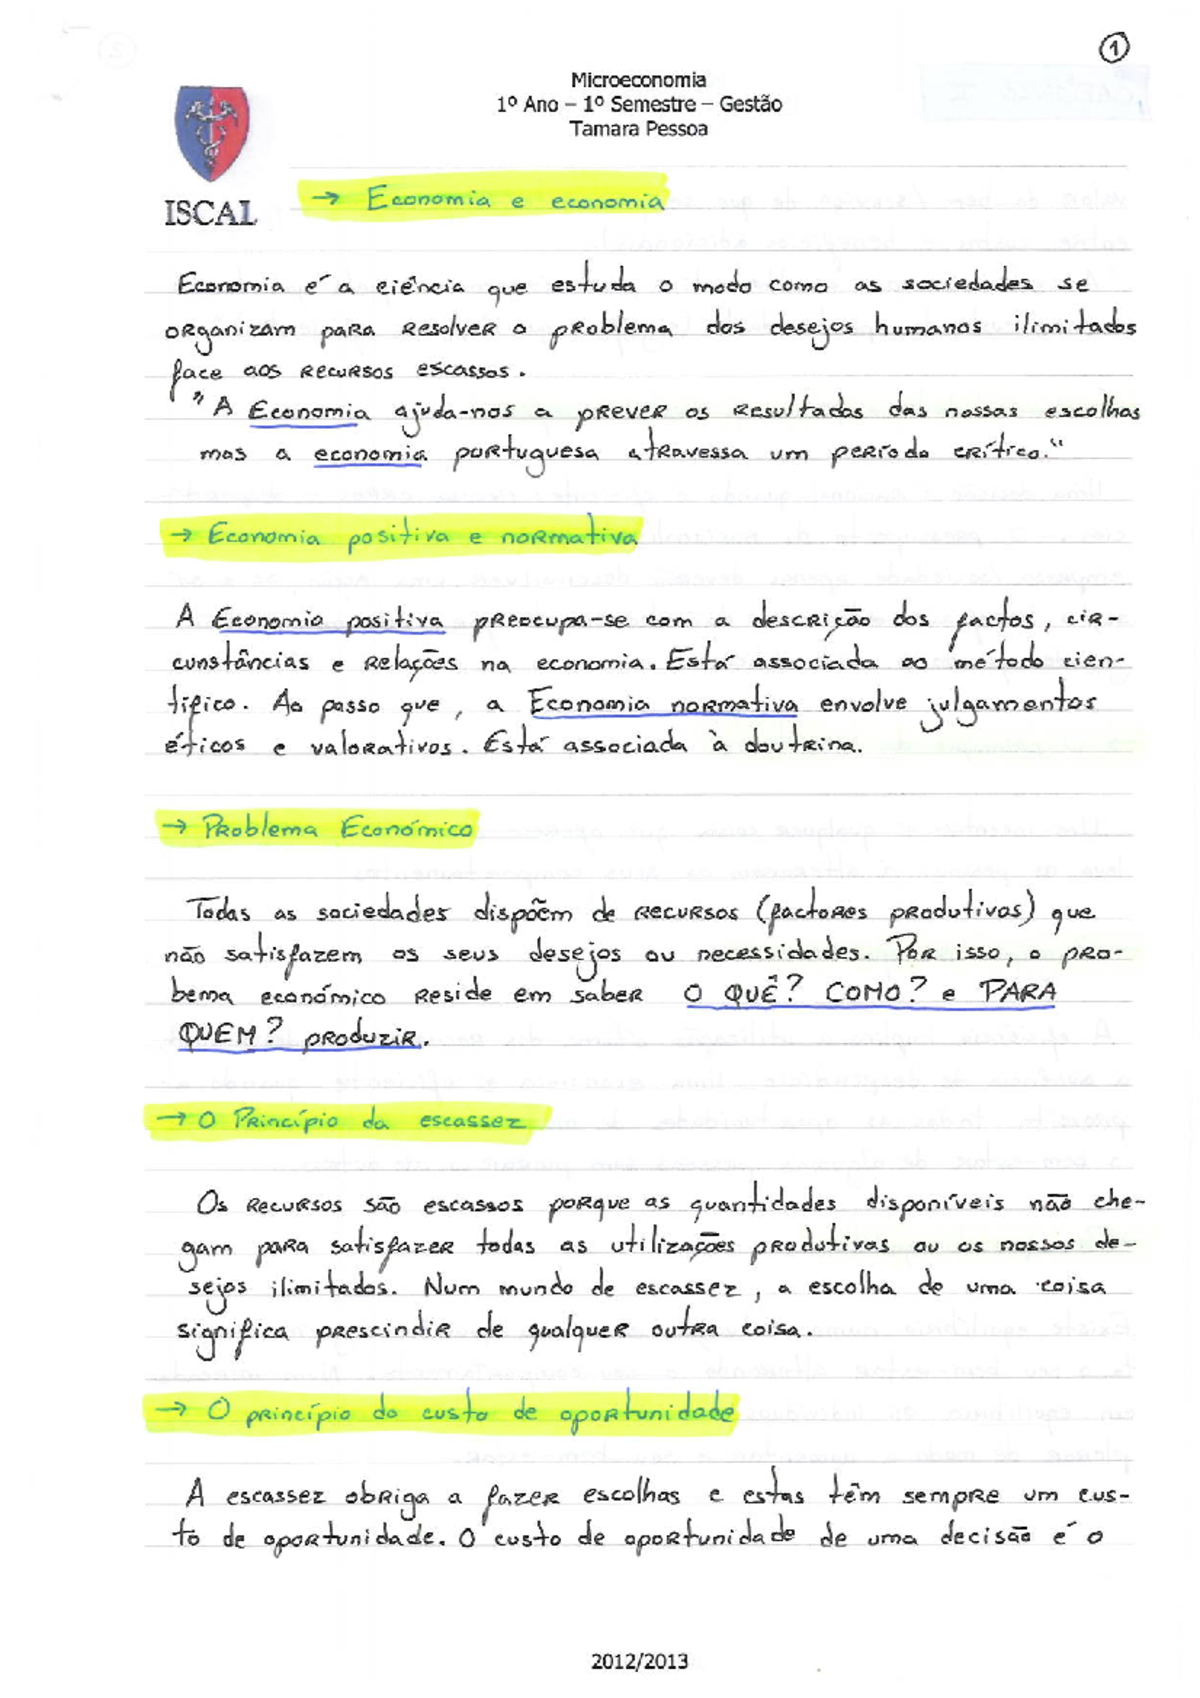 1
Microeconomia
1º Ano – 1º Semestre – Gestão
Tamara Pessoa
ISCAL
→ Economia e economia
Economia é a ciência que estuda o modo como as sociedades se
organizam para resolver o problema dos desejos humanos ilimitados
face aos recursos escassos.
"A Economia ajuda-nos a prever os resultados das nossas escolhas
mas a economia portuguesa atravessa um período crítico."
→ Economia positiva e normativa
A Economia positiva preocupa-se com a descrição dos factos, cir-
cunstâncias e relações na economia. Está associada ao método cien-
tífico. Ao passo que, a Economia normativa envolve julgamentos
éticos e valorativos. Está associada à doutrina.
→ Problema Económico
Todas as sociedades dispõem de recursos (factores produtivos) que
não satisfazem os seus desejos ou necessidades. Por isso, o pro-
bema económico reside em saber O QUÊ? COMO? e PARA
QUEM? produzir.
→ O Princípio da escassez
Os recursos são escassos porque as quantidades disponíveis não che-
gam para satisfazer todas as utilizações produtivas ou os nossos de-
sejos ilimitados. Num mundo de escassez, a escolha de uma coisa
significa prescindir de qualquer outra coisa.
→ O princípio do custo de oportunidade
A escassez obriga a fazer escolhas e estas têm sempre um cus-
to de oportunidade. O custo de oportunidade de uma decisão é o
2012/2013